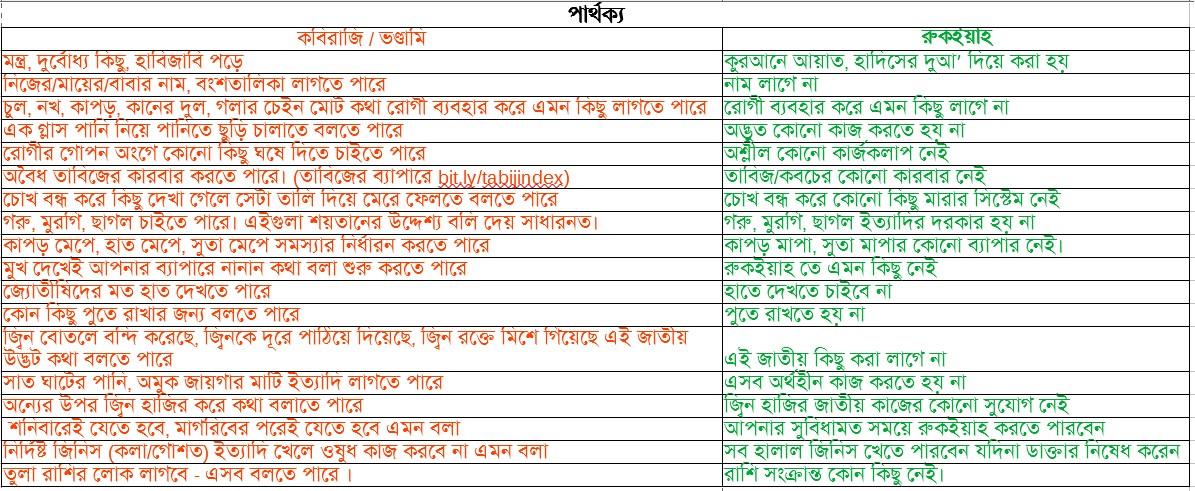 পার্থক্য
কবিরাজি / ভণ্ডামি	রুকইয়াহ
মন্ত্র, দুর্বোধ্য কিছু, হাবিজাবি পড়ে	কুরআনে আয়াত, হাদিসের দুআ' দিয়ে করা হয়
নিজের/মায়ের/বাবার নাম, বংশতালিকা লাগতে পারে	নাম লাগে না
চুল, নখ, কাপড়, কানের দুল, গলার চেইন মোট কথা রোগী ব্যবহার করে এমন কিছু লাগতে পারে	রোগী ব্যবহার করে এমন কিছু লাগে না
এক গ্লাস পানি নিয়ে পানিতে ছুড়ি চালাতে বলতে পারে	অদ্ভুত কোনো কাজ করতে হয় না
রোগীর গোপন অংগে কোনো কিছু ঘষে দিতে চাইতে পারে	অশ্লীল কোনো কার্জকলাপ নেই
অবৈধ তাবিজের কারবার করতে পারে। (তাবিজের ব্যাপারে bit.ly/tabijindex)	তাবিজ/কবচের কোনো কারবার নেই
চোখ বন্ধ করে কিছু দেখা গেলে সেটা তালি দিয়ে মেরে ফেলতে বলতে পারে	চোখ বন্ধ করে কোনো কিছু মারার সিস্টেম নেই
গরু, মুরগি, ছাগল চাইতে পারে। এইগুলা শয়তানের উদ্দেশ্য বলি দেয় সাধারনত।	গরু, মুরগি, ছাগল ইত্যাদির দরকার হয় না
কাপড় মেপে, হাত মেপে, সুতা মেপে সমস্যার নির্ধারন করতে পারে	কাপড় মাপা, সুতা মাপার কোনো ব্যাপার নেই।
মুখ দেখেই আপনার ব্যাপারে নানান কথা বলা শুরু করতে পারে	রুকইয়াহ তে এমন কিছু নেই
জ্যোতীষিদের মত হাত দেখতে পারে	হাতে দেখতে চাইবে না
কোন কিছু পুতে রাখার জন্য বলতে পারে	পুতে রাখতে হয় না
জ্বিন বোতলে বন্দি করেছে, জ্বিনকে দূরে পাঠিয়ে দিয়েছে, জ্বিন রক্তে মিশে গিয়েছে এই জাতীয়
উদ্ভট কথা বলতে পারে	এই জাতীয় কিছু করা লাগে না
সাত ঘাটের পানি, অমুক জায়গার মাটি ইত্যাদি লাগতে পারে	এসব অর্থহীন কাজ করতে হয় না
অন্যের উপর জ্বিন হাজির করে কথা বলাতে পারে	জ্বিন হাজির জাতীয় কাজের কোনো সুযোগ নেই
শনিবারেই যেতে হবে, মাগরিবের পরেই যেতে হবে এমন বলা	আপনার সুবিধামত সময়ে রুকইয়াহ করতে পারবেন
নির্দিষ্ট জিনিস (কলা/গোশত) ইত্যাদি খেলে ওষুধ কাজ করবে না এমন বলা	সব হালাল জিনিস খেতে পারবেন যদিনা ডাক্তার নিষেধ করেন
তুলা রাশির লোক লাগবে - এসব বলতে পারে ।	রাশি সংক্রান্ত কোন কিছু নেই।